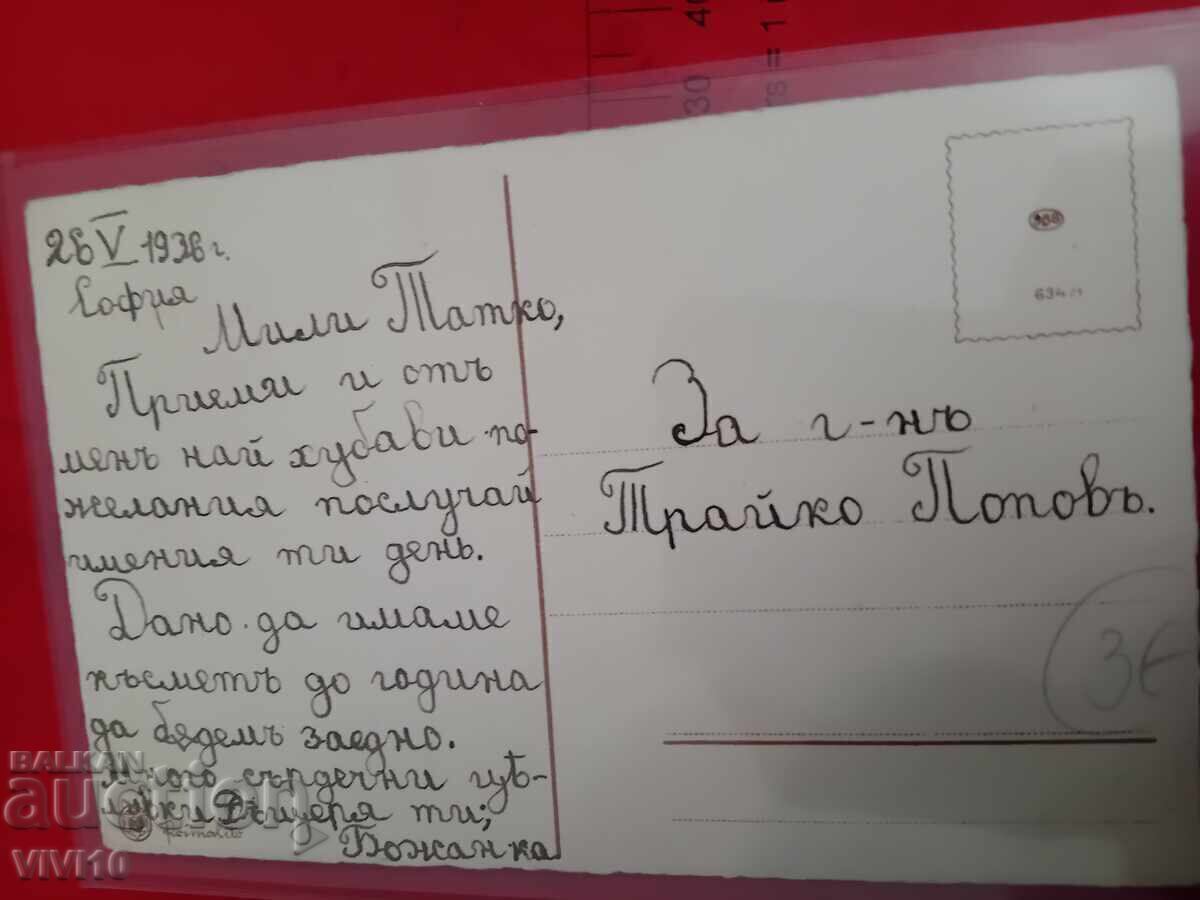 28 V 1938 г.
София
Мили Татко,
Приеми и отъ
менъ най хубави по-
желания послучай
имения ти день.
Дано да имаме
късметъ до година
да бѫдемъ заедно.
Много сърдечни цѣ-
лувки Дъщеря ти;
Божанка
За г-нъ
Трайко Поповъ.
634
3€
40
30
= 1
BALKAN
auction
VIVI10